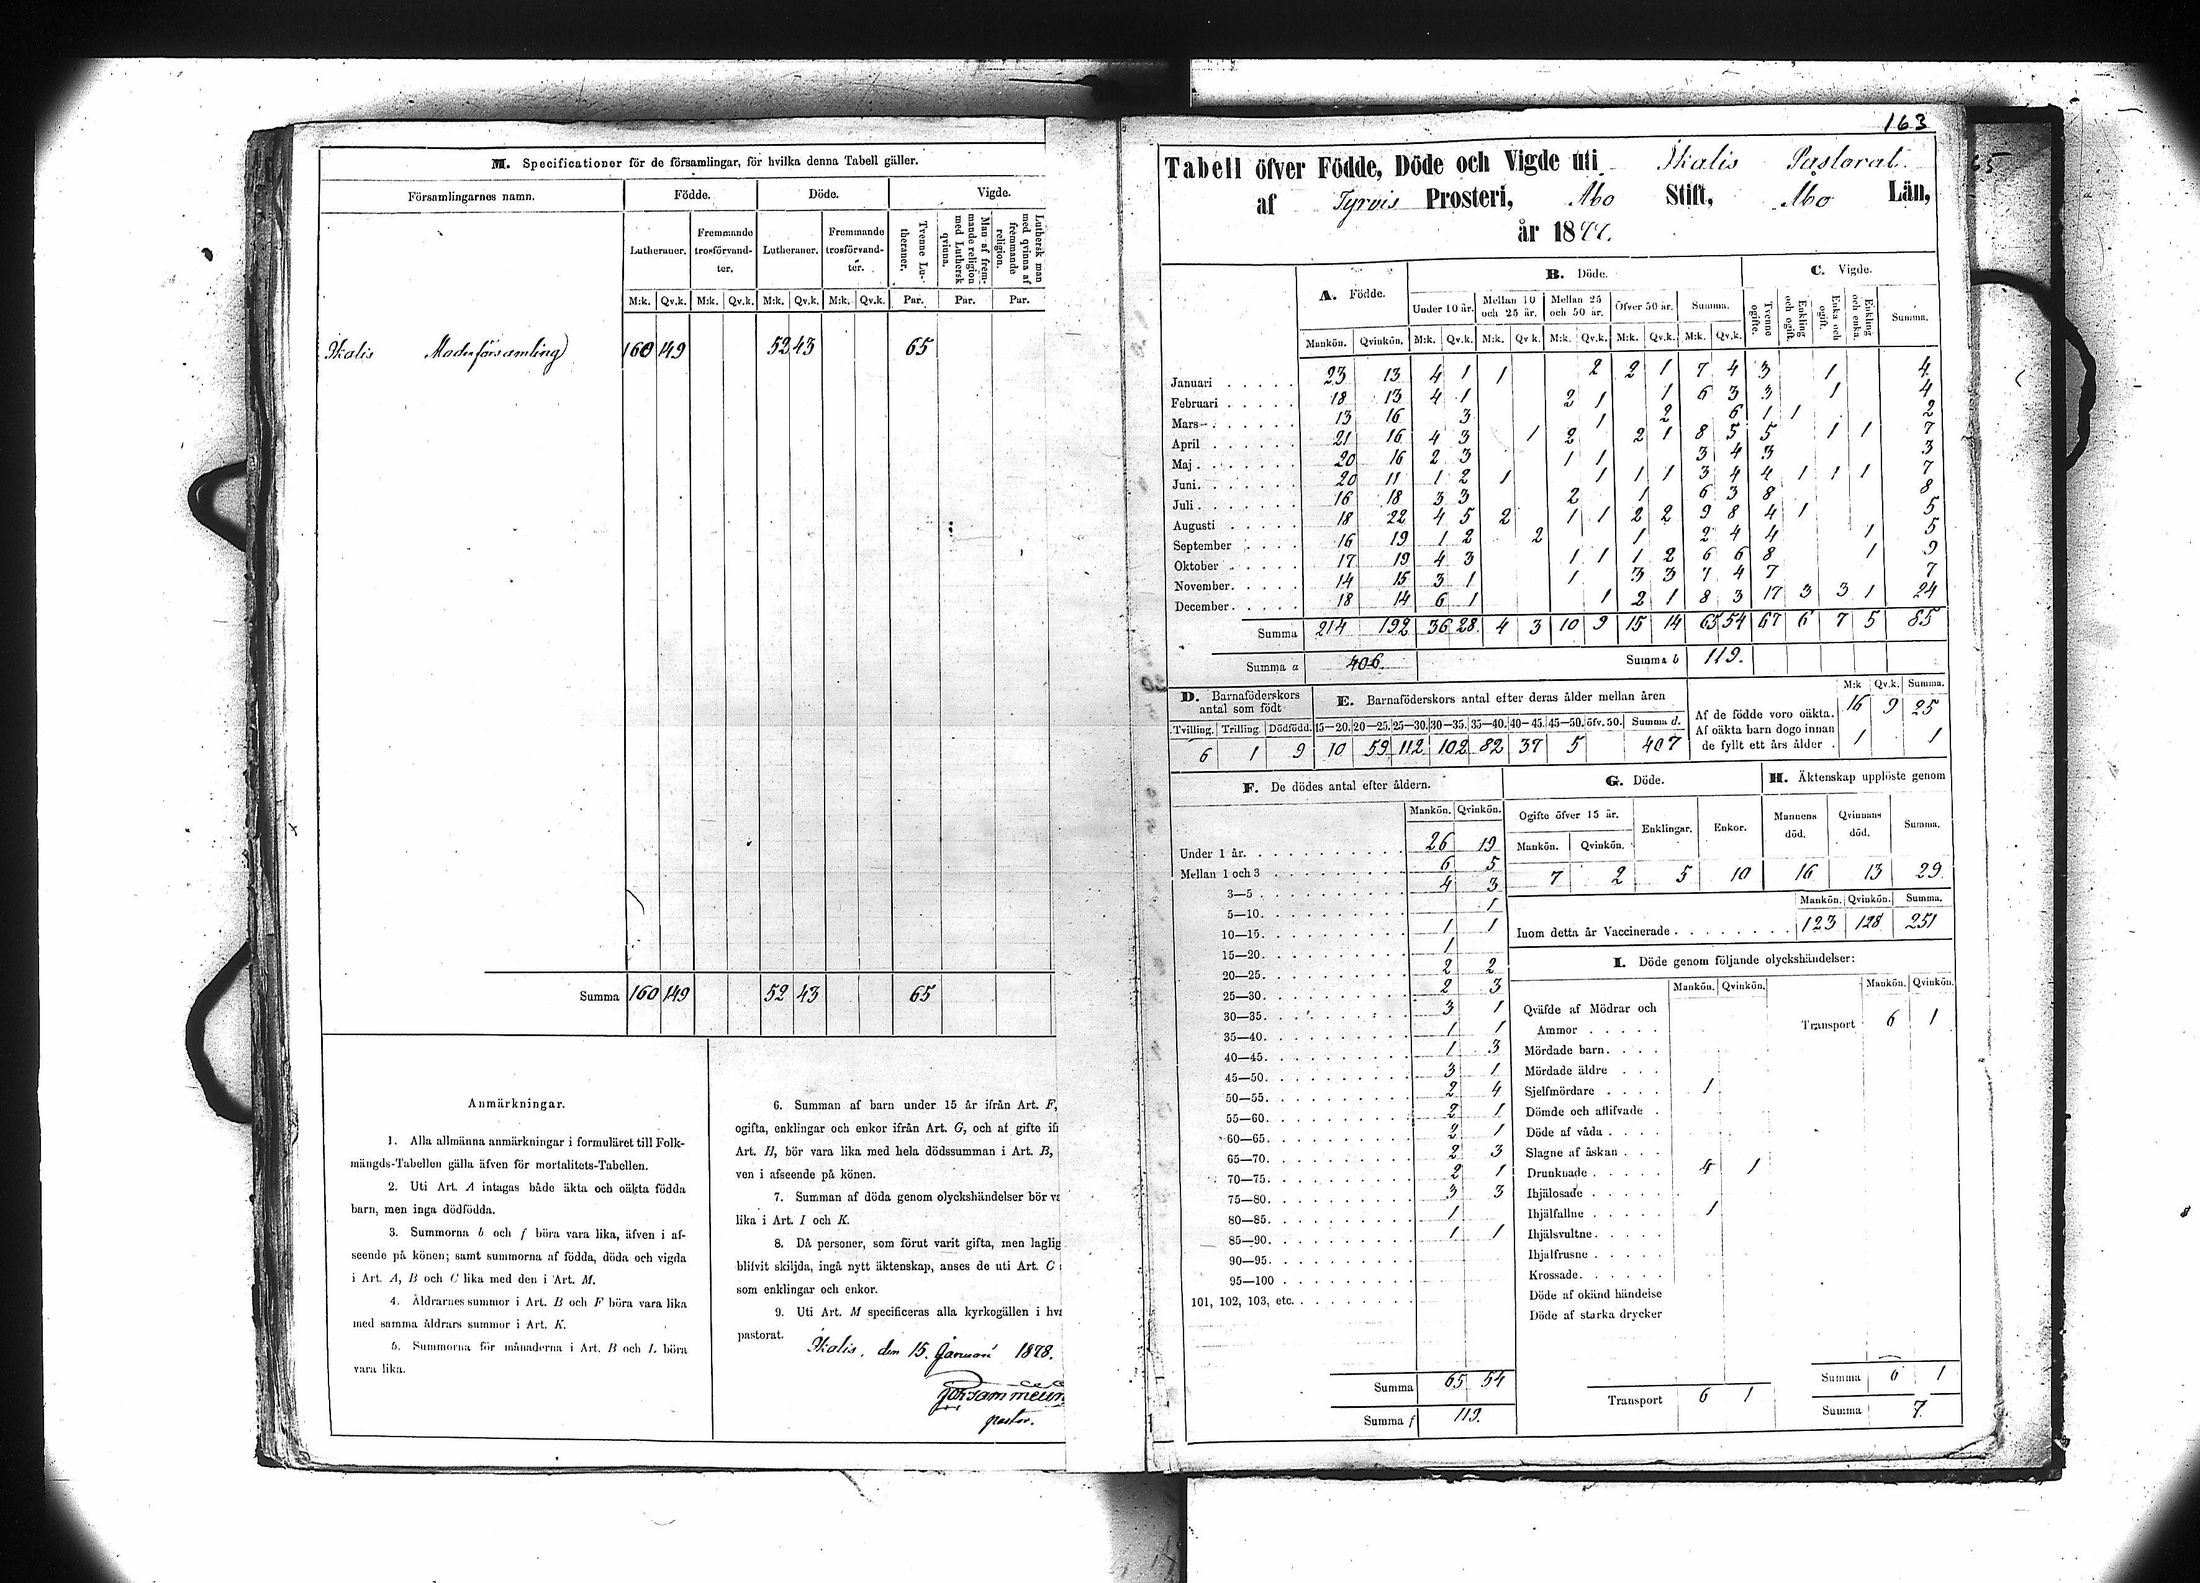 M. Specificationer för de församlingar, för hvilka denna Tabell gäller.
Församlingarnes namn. Födde. Döde. Vigde.
Lutheraner. Fremmande trosförvandter. Lutheraner. Fremmande trosförvandter. Tvenne Lutheraner. Man af fremmande religion med Luthersk qvinna. Luthersk man med qvinna af fremmande religion.
M:k. Qv.k. M:k. Qv.k. M:k. Qv.k. M:k. Qv.k. Par. Par. Par.
Ikalis Moderförsamling 160 149 52 43 65
Summa 160 149 52 43 65
Anmärkningar.
1. Alla allmänna anmärkningar i formuläret till Folk-
mängds-Tabellen gälla äfven för mortalitets-Tabellen.
2. Uti Art. A intagas både äkta och oäkta födda
barn, men inga dödfödda.
3. Summorna b och f böra vara lika, äfven i af-
seende på könen; samt summorna af födda, döda och vigda
i Art. A, B och C lika med den i Art. M.
4. Åldrarnes summor i Art. B och F böra vara lika
med samma åldrars summor i Art. K.
5. Summorna för månaderna i Art. B och L böra
vara lika.
6. Summan af barn under 15 år ifrån Art. F,
ogifta, enklingar och enkor ifrån Art. G, och af gifte if
Art. H, bör vara lika med hela dödssumman i Art. B,
ven i afseende på könen.
7. Summan af döda genom olyckshändelser bör va
lika i Art. I och K.
8. Då personer, som förut varit gifta, men laglig
blifvit skiljda, ingå nytt äktenskap, anses de uti Art. C
som enklingar och enkor.
9. Uti Art. M specificeras alla kyrkogällen i hva
pastorat.
Ikalis, den 15. Januari 1878.
pastor.
163
Tabell öfver Födde, Döde och Vigde uti Ikalis Pastorat
af Tyrvis Prosteri, Åbo Stift, Åbo Län,
år 1877.
A. Födde. B. Döde. C. Vigde.
Under 10 år. Mellan 10 och 25 år. Mellan 25 och 50 år. Öfver 50 år. Summa. Tvenne ogifte. Enkling och ogift. Enka och ogift. Enkling och enka. Summa.
Mankön. Qvinkön. M:k. Qv.k. M:k. Qv k. M:k. Qv.k. M:k. Qv.k. M:k. Qv.k.
Januari 23 13 4 1 1 2 2 1 7 4 3 1 4
Februari 18 13 4 1 2 1 1 6 3 3 1 4
Mars 13 16 3 1 2 6 1 1 2
April 21 16 4 3 1 2 2 1 8 5 5 1 1 7
Maj 20 16 2 3 1 1 3 4 3 3
Juni 20 11 1 2 1 1 1 1 3 4 4 1 1 1 7
Juli 16 18 3 3 2 1 6 3 8 8
Augusti 18 22 4 5 2 1 1 2 2 9 8 4 1 5
September 16 19 1 2 2 1 2 4 4 1 5
Oktober 17 19 4 3 1 1 1 2 6 6 8 1 9
November 14 15 3 1 1 3 3 7 4 7 7
December 18 14 6 1 1 2 1 8 3 17 3 3 1 24
Summa 214 192 36 28 4 3 10 9 15 14 65 54 67 6 7 5 85
Summa a 406. Summa b 119.
D. Barnaföderskors antal som födt E. Barnaföderskors antal efter deras ålder mellan åren
M:k Qv.k. Summa.
Tvilling. Trilling. Dödfödd. 15—20. 20—25. 25—30. 30—35. 35—40. 40—45. 45—50. öfv. 50. Summa d.
6 1 9 10 59 112 102 82 37 5 407
Af de födde voro oäkta. 16 9 25
Af oäkta barn dogo innan
de fyllt ett års ålder 1 1
F. De dödes antal efter åldern.
Mankön. Qvinkön.
Under 1 år. 26 19
Mellan 1 och 3 6 5
3—5 4 3
5—10. 1
10—15. 1 1
15—20. 1
20—25. 2 2
25—30. 2 3
30—35. 3 1
35—40. 1 1
40—45. 1 3
45—50. 3 1
50—55. 2 4
55—60. 2 1
60—65. 2 1
65—70. 2 3
70—75. 2 1
75—80. 3 3
80—85. 1
85—90. 1 1
90—95.
95—100
101, 102, 103, etc.
Summa 65 54
Summa f 119.
G. Döde. H. Äktenskap upplöste genom
Ogifte öfver 15 år. Enklingar. Enkor. Mannens död. Qvinnans död. Summa.
Mankön. Qvinkön.
7 2 5 10 16 13 29
Mankön. Qvinkön. Summa.
Inom detta år Vaccinerade 123 128 251
I. Döde genom följande olyckshändelser:
Mankön. Qvinkön. Mankön. Qvinkön.
Qväfde af Mödrar och
Ammor
Transport 6 1
Mördade barn.
Mördade äldre
Sjelfmördare 1
Dömde och aflifvade
Döde af våda
Slagne af åskan
Drunknade 4 1
Ihjälosade
Ihjälfallne 1
Ihjälsvultne.
Ihjälfrusne
Krossade.
Döde af okänd händelse
Döde af starka drycker
Transport 6 1
Summa 6 1
Summa 7.